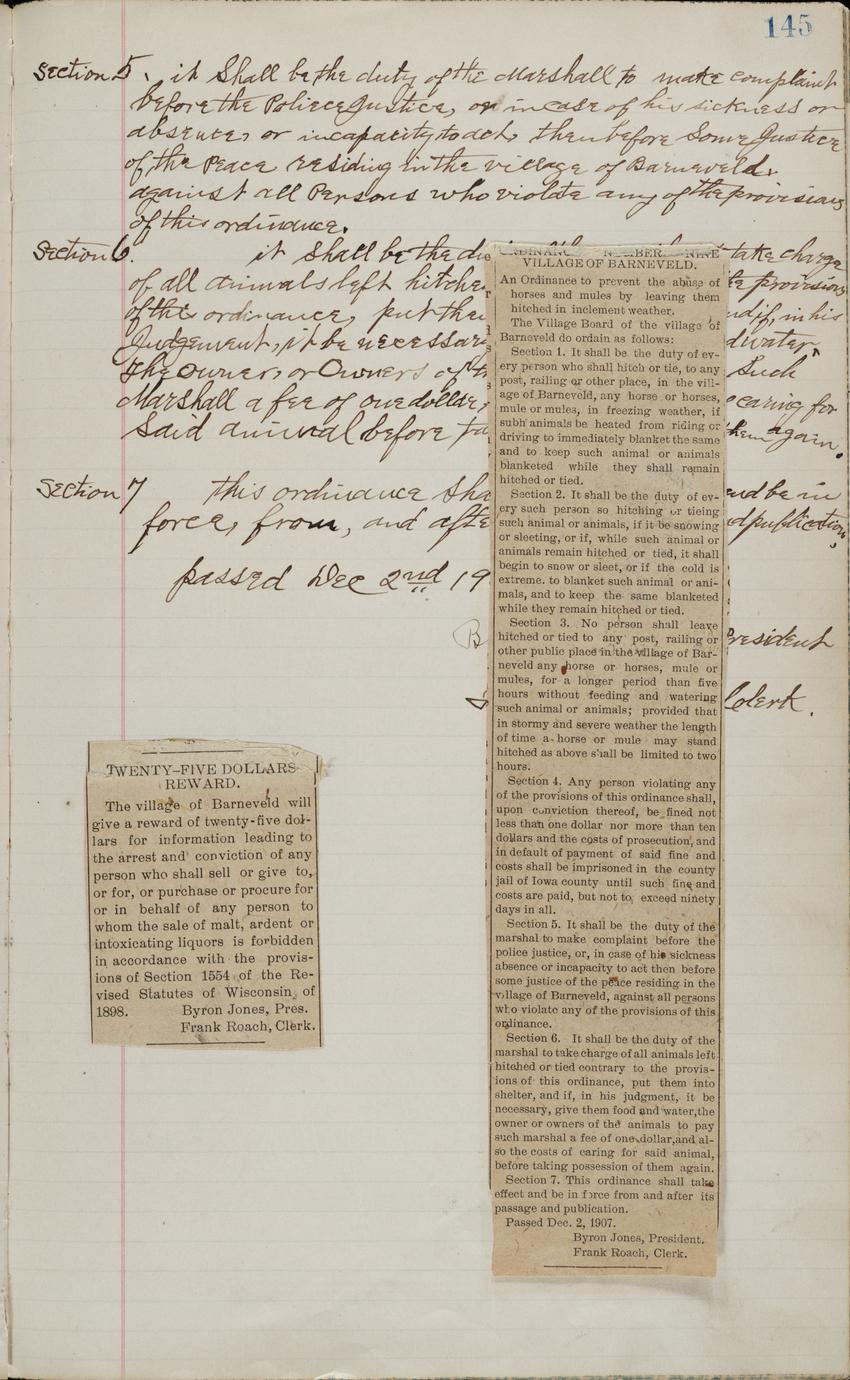 145
Section 5. it Shall be the duty of the Marshall to make complaint
before the Poliece Justice, or in case of his sickness or
absence, or incapacity to act, then before Some Justice
of the Peace residing in the village of Barneveld.
against all Persons who violate any of the provisions
of this ordinance.
Section 6. it Shall be the du take charge
of all animals left hitche provisions
of this ordinance, put the if in his
Judgement, it be necessar water,
the Owner, or Owners of th Such
Marshall a fee of one dollar, caring for
Said animal before ta them again.
Section 7 this ordinance Sha and be in
force, from, and afte publication,
passed Dec 2nd 19
B President
Clerk.
ORDINANCE NUMBER NINE
VILLAGE OF BARNEVELD.
An Ordinance to prevent the abuse of
horses and mules by leaving them
hitched in inclement weather.
The Village Board of the village of
Barneveld do ordain as follows:
Section 1. It shall be the duty of ev-
ery person who shall hitch or tie, to any
post, railing or other place, in the vill-
age of Barneveld, any horse or horses,
mule or mules, in freezing weather, if
subh animals be heated from riding or
driving to immediately blanket the same
and to keep such animal or animals
blanketed while they shall remain
hitched or tied.
Section 2. It shall be the duty of ev-
ery such person so hitching or tieing
such animal or animals, if it be snowing
or sleeting, or if, while such animal or
animals remain hitched or tied, it shall
begin to snow or sleet, or if the cold is
extreme. to blanket such animal or ani-
mals, and to keep the same blanketed
while they remain hitched or tied.
Section 3. No person shall leave
hitched or tied to any post, railing or
other public place in the village of Bar-
neveld any horse or horses, mule or
mules, for a longer period than five
hours without feeding and watering
such animal or animals; provided that
in stormy and severe weather the length
of time a horse or mule may stand
hitched as above shall be limited to two
hours.
Section 4. Any person violating any
of the provisions of this ordinance shall,
upon conviction thereof, be fined not
less than one dollar nor more than ten
dollars and the costs of prosecution, and
in default of payment of said fine and
costs shall be imprisoned in the county
jail of Iowa county until such fine and
costs are paid, but not to exceed ninety
days in all.
Section 5. It shall be the duty of the
marshal to make complaint before the
police justice, or, in case of his sickness
absence or incapacity to act then before
some justice of the peace residing in the
village of Barneveld, against all persons
who violate any of the provisions of this
ordinance.
Section 6. It shall be the duty of the
marshal to take charge of all animals left
hitched or tied contrary to the provis-
ions of this ordinance, put them into
shelter, and if, in his judgment, it be
necessary, give them food and water,the
owner or owners of the animals to pay
such marshal a fee of one dollar,and al-
so the costs of caring for said animal,
before taking possession of them again.
Section 7. This ordinance shall take
effect and be in force from and after its
passage and publication.
Passed Dec. 2, 1907.
Byron Jones, President.
Frank Roach, Clerk.
TWENTY-FIVE DOLLARS
REWARD.
The village of Barneveld will
give a reward of twenty-five dol-
lars for information leading to
the arrest and conviction of any
person who shall sell or give to,
or for, or purchase or procure for
or in behalf of any person to
whom the sale of malt, ardent or
intoxicating liquors is forbidden
in accordance with the provis-
ions of Section 1554 of the Re-
vised Statutes of Wisconsin of
1898. Byron Jones, Pres.
Frank Roach, Clerk.